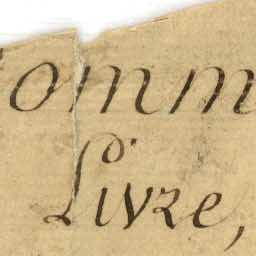 omm
Livre,